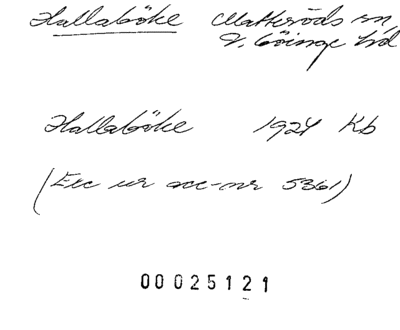 Hallaböke Matteröds sn
V. Göinge hd
Hallaböke 1924 Kb
(Exc ur acc-nr 5361)
00025121